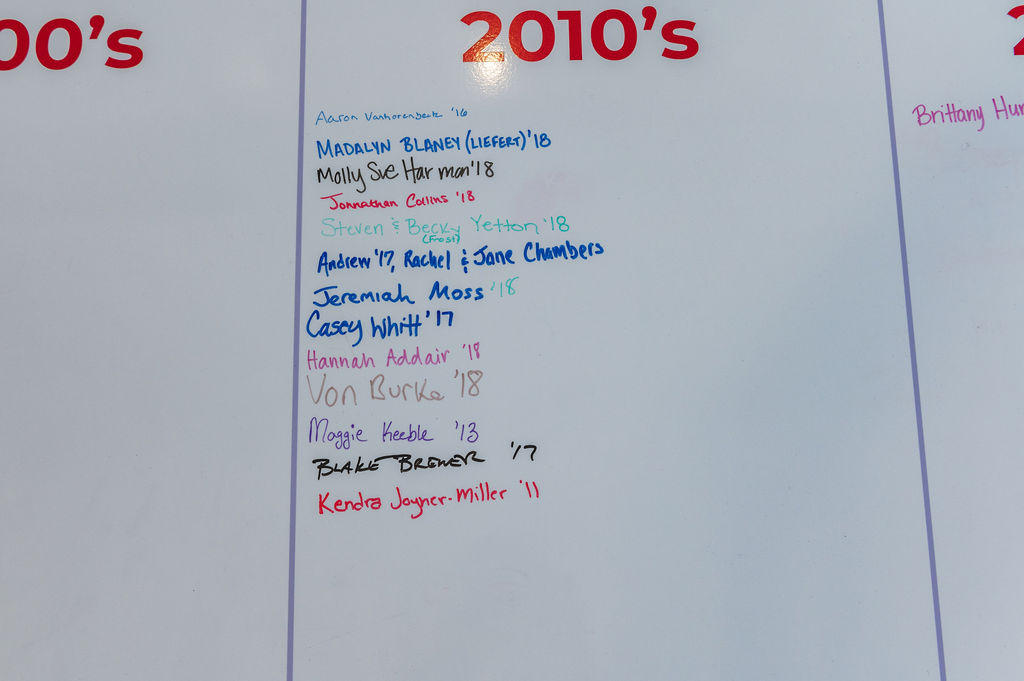 00's
2010's
Aaron Vanhorenbeck '16
MADALYN BLANEY (LIEFERT) '18
Molly Sue Harmon '18
Jonnathan Collins '18
Steven & Becky Yetton '18
(Frost)
Andrew '17, Rachel & Jane Chambers
Jeremiah Moss '18
Casey Whitt '17
Hannah Addair '18
Von Burke '18
Maggie Keeble '13
BLAKE BREWER '17
Kendra Joyner-Miller '11
2
Brittany Hun